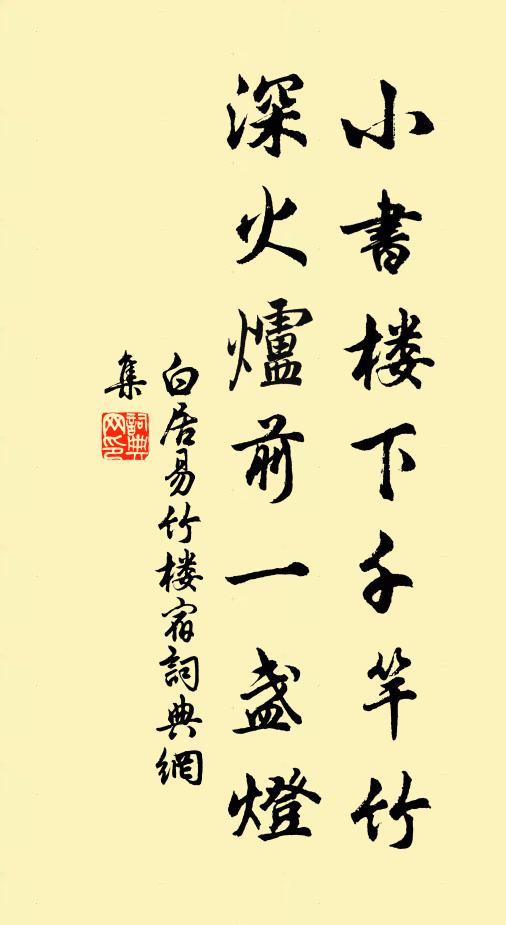 小書楼下千竿竹
深火爐前一盏燈
白居易竹楼宿詞典網
集
詞典
网印